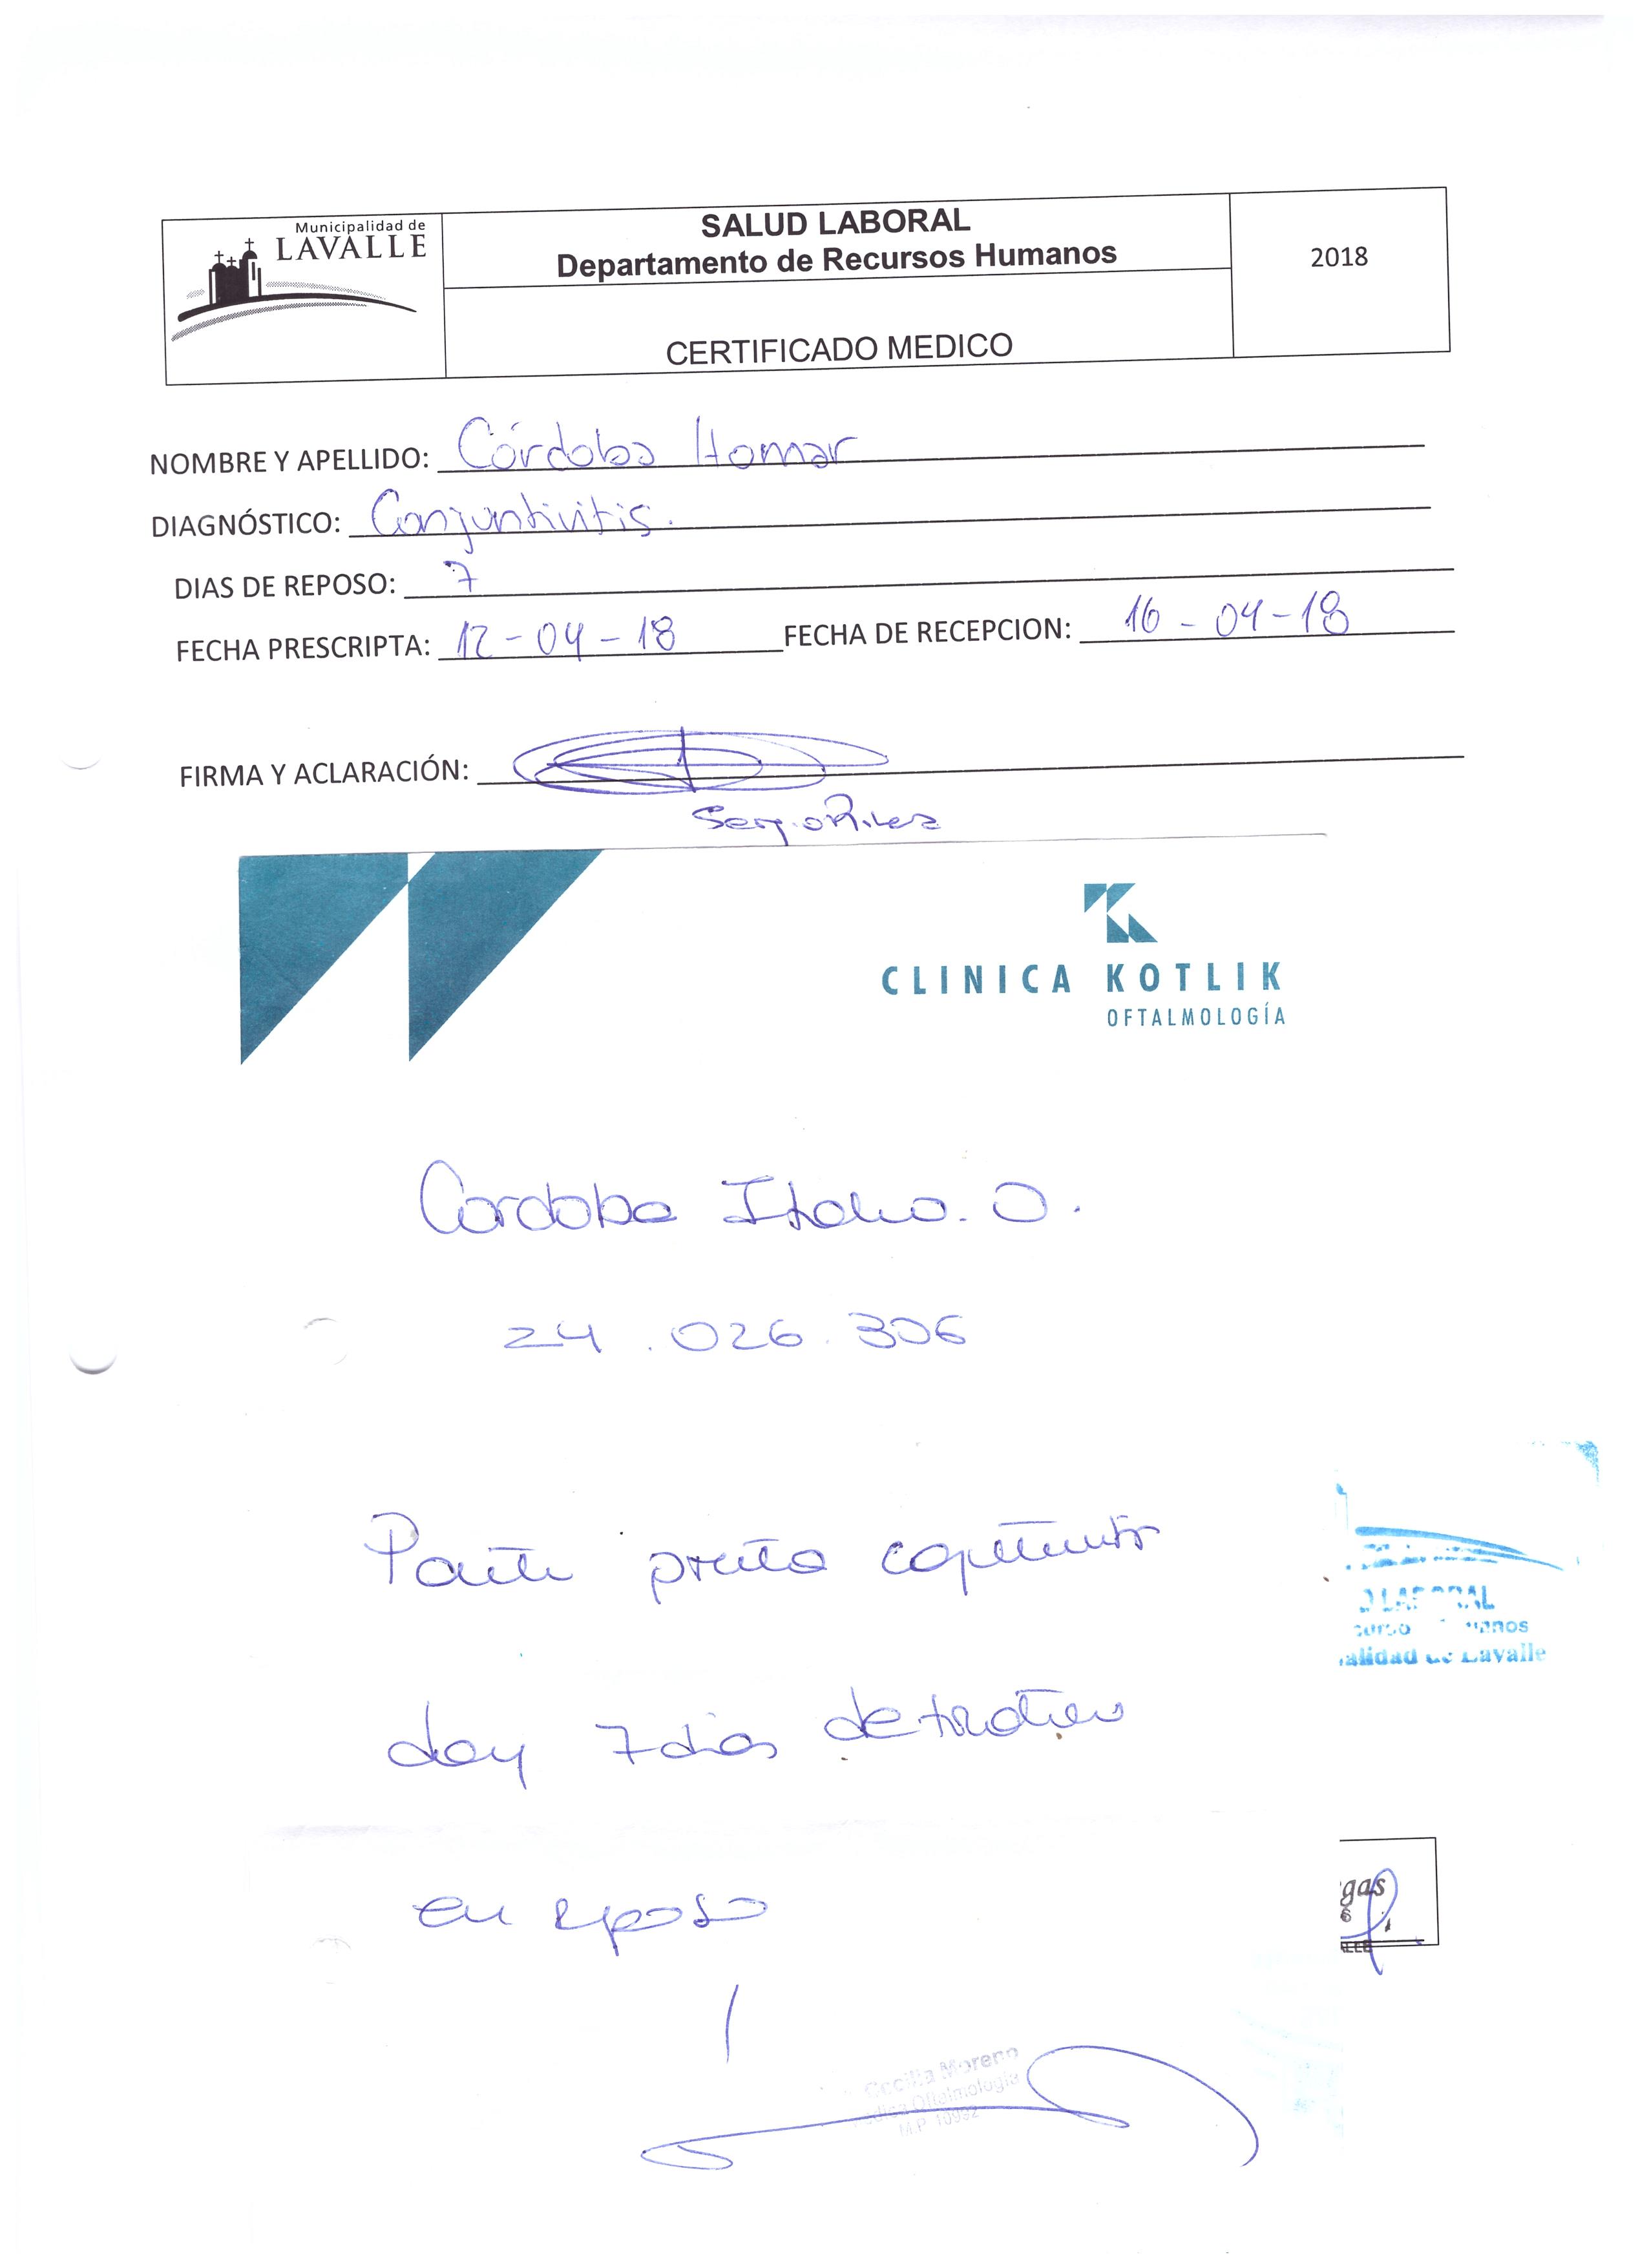 Municipalidad de
LAVALLE
SALUD LABORAL
Departamento de Recursos Humanos
2018
CERTIFICADO MEDICO
NOMBRE Y APELLIDO: Córdoba Homar
DIAGNÓSTICO: Conjuntivitis.
DIAS DE REPOSO: 7
FECHA PRESCRIPTA: 12-04-18 FECHA DE RECEPCION: 16-04-18
FIRMA Y ACLARACIÓN:
Sergio
CLINICA KOTLIK
OFTALMOLOGÍA
Cordoba Italio. O.
24.026.306
day 7 dias de
en reposo
alidad de Lavalle
gas
6
Cecilia Moreno
Oftalmología
M.P. 10992